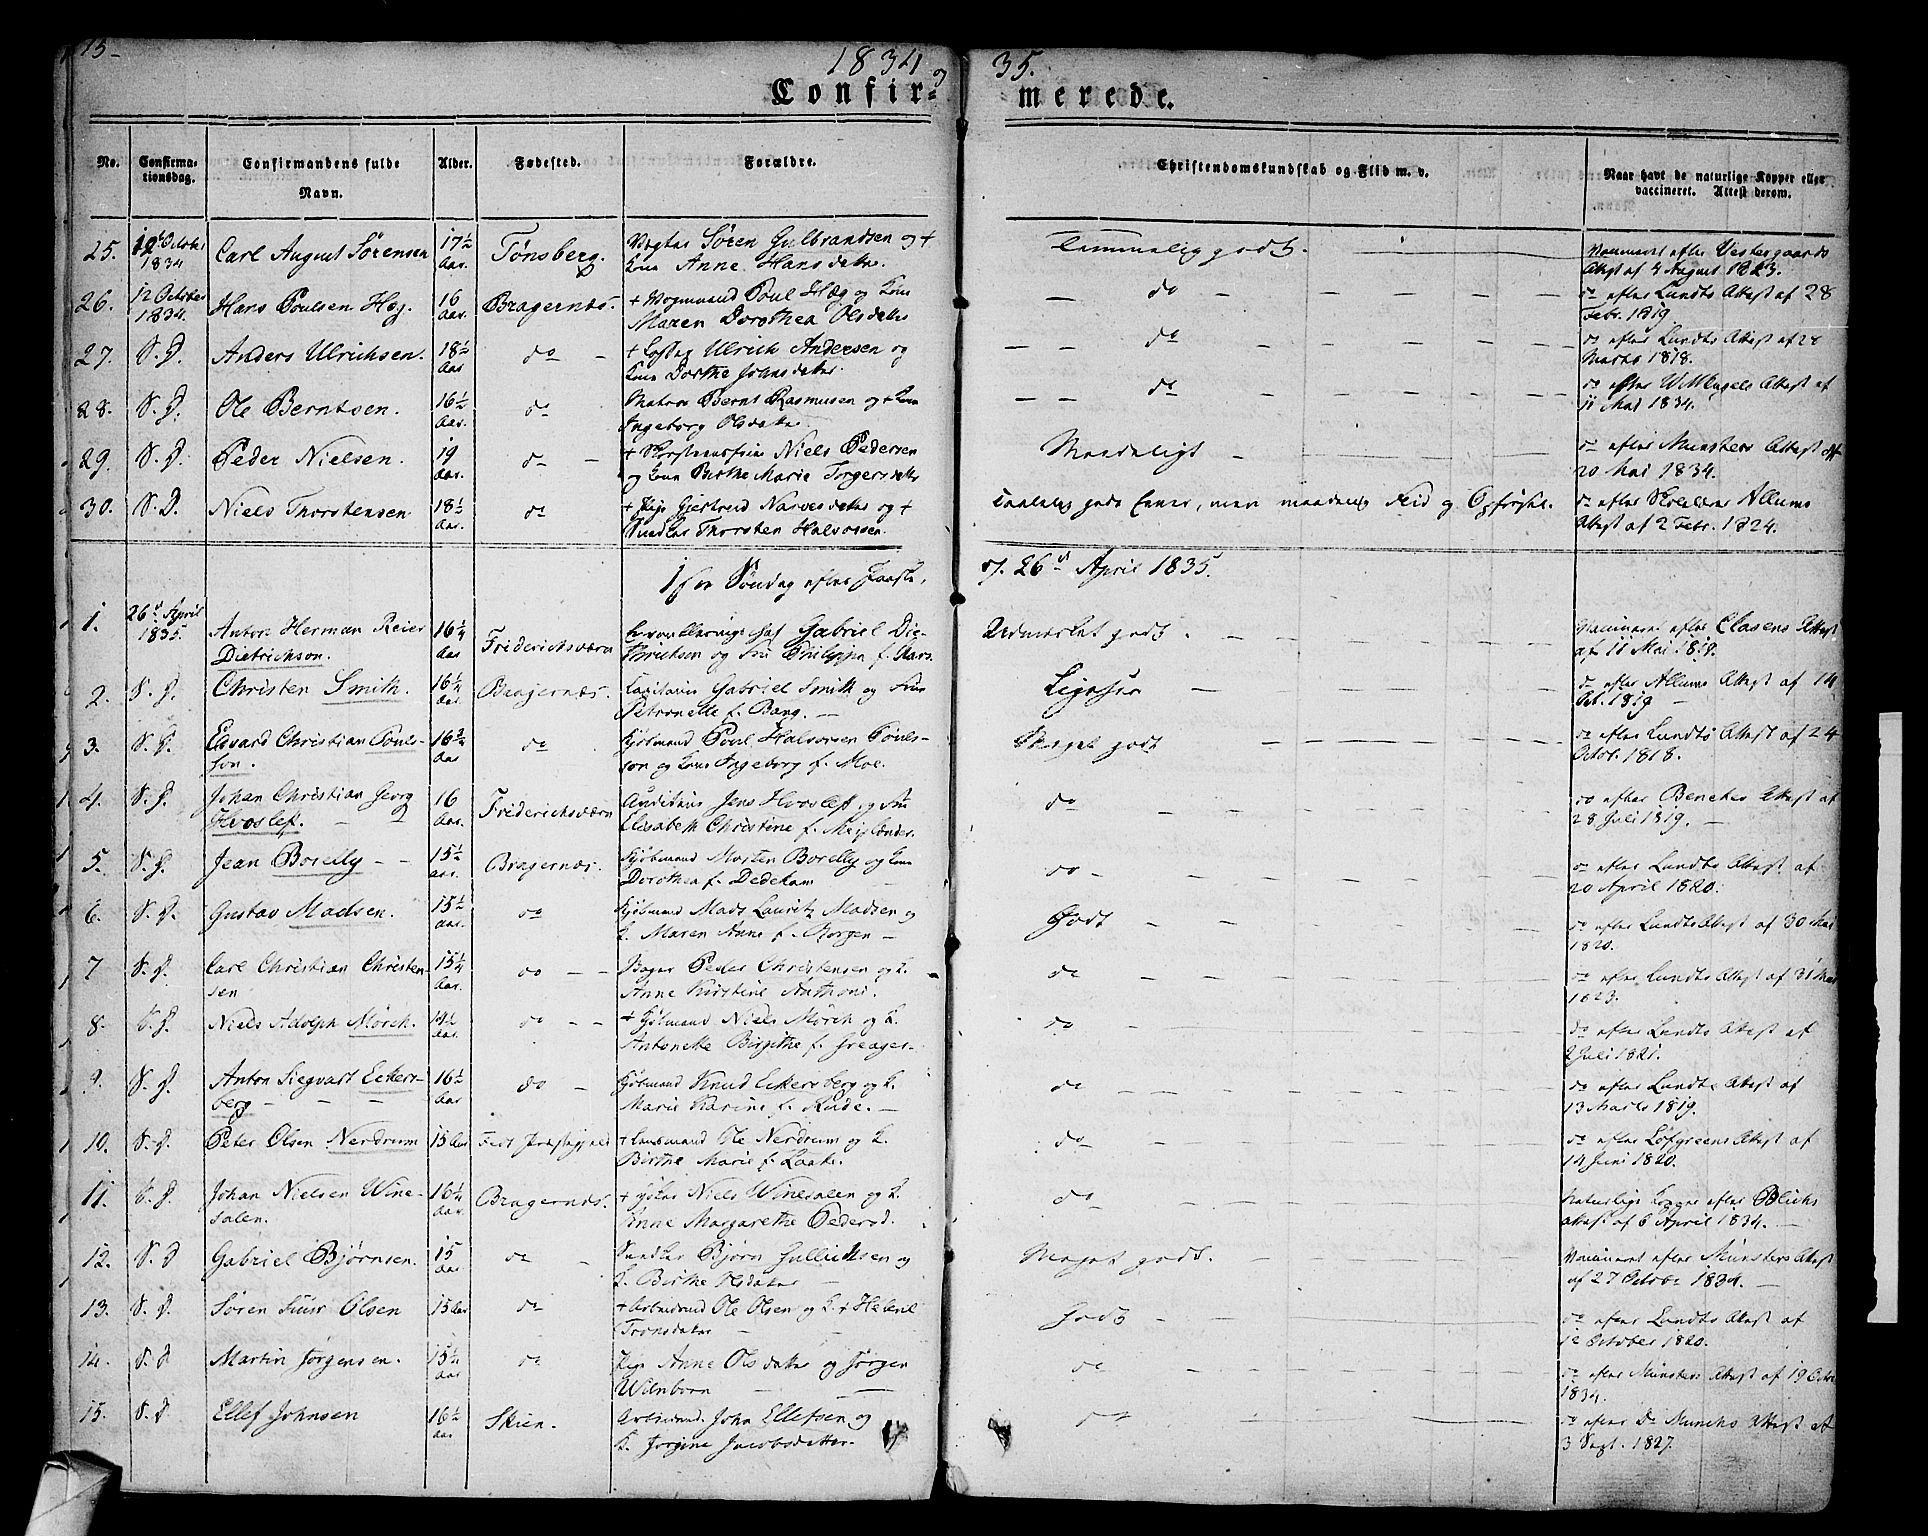 15-
1834 og 35.
Confir- merede.
No. Confirma-tionsdag. Confirmandens fulde Navn. Alder. Fødested. Forældre. Christendomskundskab og Flid m. v. Naar havt de naturlige Kopper eller vaccineret. Attest derom.
25. 12 October 1834 Carl August Sørensen 17½ Aar. Tønsberg. Vægter Søren Gulbrandsen og + Kone Anne Hansdatter. Temmelig godt. Vaccineret efter Vestergaards Attest af 4 August 1823.
26. 12 October 1834. Hans Poulsen Høg. 16 Aar. Bragernæs. + Vogmand Poul Høg og Kone Maren Dorothea Olsdatter do do efter Lundts Attest af 28 Febr. 1819.
27. S. D. Anders Ulrichsen. 18½ Aar do + Ulrich Andersen og Kone Dorthe Johnsdatter. do do efter Lundts Attest af 28 Marts 1818.
28. S. D. Ole Berntsen. 16½ Aar. do Matros Bernt Rasmusen og + Kone Ingeborg Olsdatter do do efter Attest af 11 Mai 1834.
29. S. D. Peder Nielsen. 19 Aar. do + Niels Pedersen og Kone Birthe Marie Torgersdatter Maadeligt do efter Munsters Attest af 20 Mai 1834.
30. S. D. Niels Thorstensen 18½ Aar. do + Pige Gjertrud Narvesdatter og + Snedker Thorsten Halvorsen. Taalelig gode Evner, men maadelig Flid og Opførsel. do efter Allums Attest af 2 Febr. 1824.
1ste Søndag efter Paaske, d. 26de April 1835.
1. 26de April 1835. Anton Herman Reier Dietrichson. 16¼ Aar Friderichsværn Gabriel Dietrichsen og Fru Philippa f. Udmærket godt. Vaccineret efter Clasens Attest af 11 Mai 1819.
2. S. D. Christen Smith. 16¼ Aar Bragernæs. Gabriel Smith og Frue Petronelle f. Bang. Ligesaa do efter Allums Attest af 14 Oct. 1819
3. S. D. Edvard Christian Poulsson. 16¾ Aar do Kjøbmand Poul Halvorsen Poulsson og Kone Ingeborg f. Moe. Meget godt do efter Lundts Attest af 24 Octbr. 1818.
4. S. D. Johan Christian Georg Hvoslef. 16 Aar. Friderichsværn Auditeur Jens Hvoslef og Fru Elisabeth Christine f. Meislænder. do do efter Benekes Attest af 28 Juli 1819.
5. S. D. Jean Borelly 15½ Aar. Bragernæs. Kjøbmand Morten Borelly og Kone Dorothea f. Dedekam do do efter Lundts Attest af 20 April 1820.
6. S. D. Gustav Madsen. 15½ Aar. do Kjøbmand Mads Lauritz Madsen og K. Maren Anne f. Borgen Godt do efter Lundts Attest af 30 Mai 1820.
7 S. D. Carl Christian Christensen 15¼ Aar. do Bager Peder Christensen og K. Anne Kirstine Anthoni. do do efter Lundts Attest af 31 Mai 1823.
8. S. D. Niels Adolph Mørch. 14½ Aar. do + Kjøbmand Niels Mørch og K. Antonette Birgithe f. Greager. do do efter Lundts Attest af 2 Juli 1821.
9. S. D. Anton Siegvart Eckersberg 16½ Aar do Kjøbmand Knud Eckersberg og K. Marie Karine f. Rude. do do efter Lundts Attest af 13 Marts 1819.
10. S. D. Peter Olsen Nerdrum 15 Aar Fedt Præstegjeld + Ole Nerdrum og K. Birthe Marie f. Kaabe. do do efter Løfgreens Attest af 14 Juni 1820.
11. S. D. Johan Nielsen Winesalen. 16¼ Aar. Bragernæs. + Niels Winesalen og K. Anne Margarethe Pedersd. do Naturlige Kopper efter Blichs Attest af 6 April 1834.
12. S. D Gabriel Bjørnsen. 15 Aar do Snedker Bjørn Gullichsen og K. Birthe Olsdatter Meget godt. Vaccineret efter Munsters Attest af 27 October 1834.
13. S. D. Søren Olsen 15 Aar do + Arbeidsmd Ole Olsen og K. Helene Tronsdatter Godt do efter Lundts Attest af 12 October 1820.
14. S. D Martin Jørgensen. 15¼ Aar do Pige Anne Olsdatter og Jørgen Wilnborn do do efter Munsters Attest af 19 Octbr 1834.
15. S. D Ellef Johnsen 16½ Aar Skien. Arbeidsmd. John Ellefsen og K. Jørgine Jacobsdatter. do do efter Dr Munchs Attest af 3 Sept. 1827.